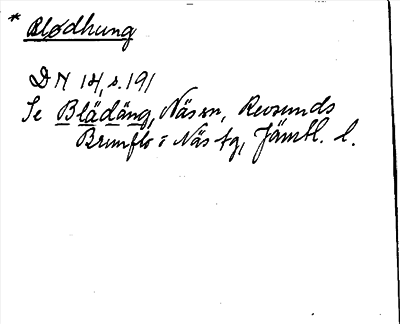 * Blødhung
DN 14, s. 191
Se Blädäng, Näs sn, Revsunds
Brunflo o Näs tg, Jämtl. l.